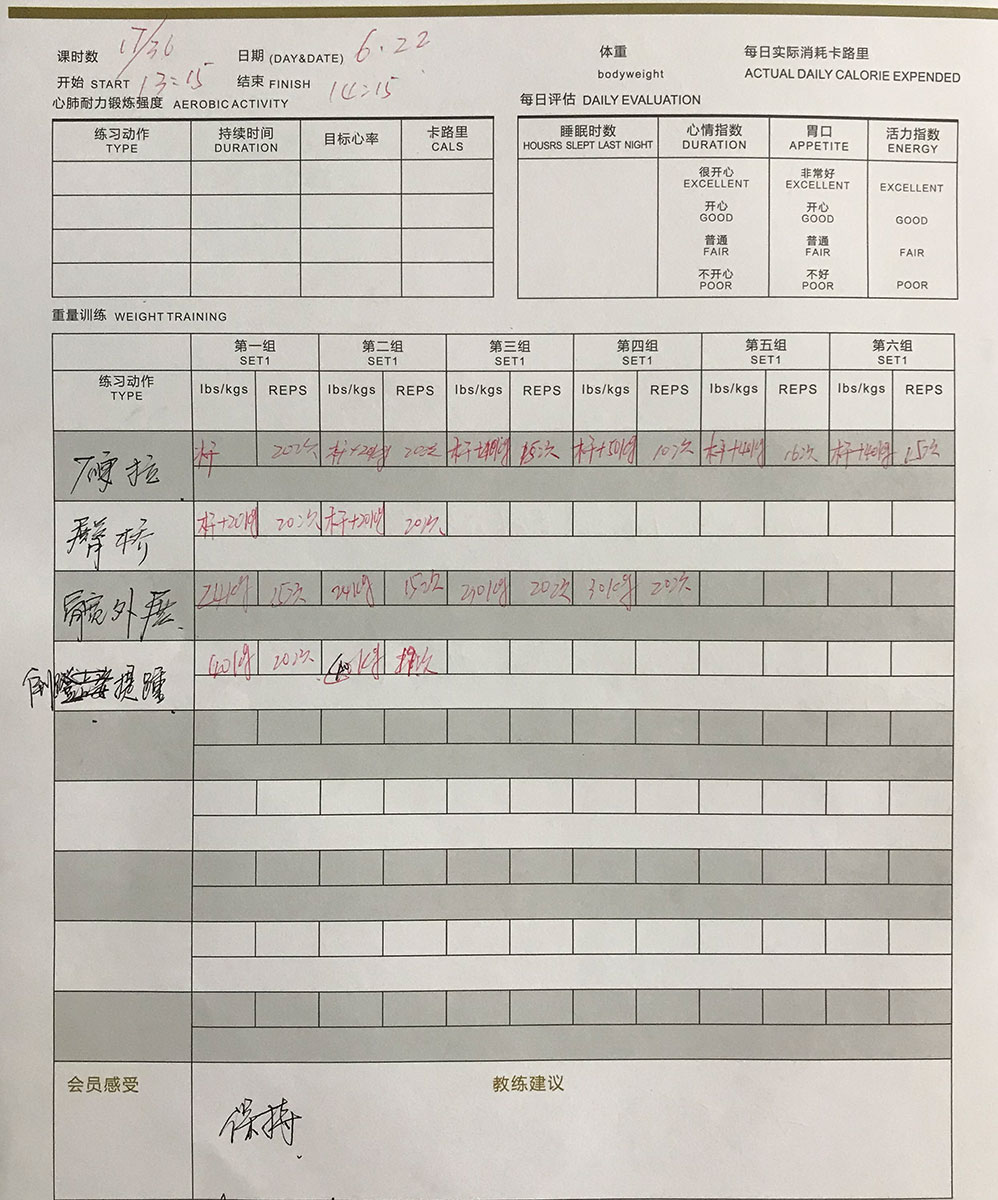 课时数 17/36 日期 (DAY&DATE) 6.22 体重 每日实际消耗卡路里
开始 START 13:15 结束 FINISH 14:15 bodyweight ACTUAL DAILY CALORIE EXPENDED
心肺耐力锻炼强度 AEROBIC ACTIVITY 每日评估 DAILY EVALUATION
练习动作 持续时间 目标心率 卡路里 睡眠时数 心情指数 胃口 活力指数
TYPE DURATION CALS HOUSRS SLEPT LAST NIGHT DURATION APPETITE ENERGY
很开心 非常好
EXCELLENT EXCELLENT EXCELLENT
开心 开心
GOOD GOOD GOOD
普通 普通
FAIR FAIR FAIR
不开心 不好
POOR POOR POOR
重量训练 WEIGHT TRAINING
第一组 第二组 第三组 第四组 第五组 第六组
SET1 SET1 SET1 SET1 SET1 SET1
练习动作 lbs/kgs REPS lbs/kgs REPS lbs/kgs REPS lbs/kgs REPS lbs/kgs REPS lbs/kgs REPS
TYPE
硬拉 杆 20次 杆+20kg 20次 杆+40kg 15次 杆+50kg 10次 杆+40kg 16次 杆+40kg 15次
臀桥 杆+20kg 20次 杆+20kg 20次
髋外展 24kg 15次 24kg 15次 30kg 20次 30kg 20次
倒蹬 提踵 40kg 20次 40kg
会员感受 教练建议
保持